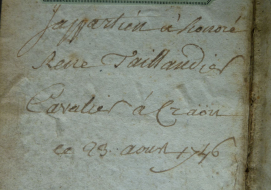 J'appartien à honoré
René Taillandier
Cavalier à Craon
ce 23 aoust 1746